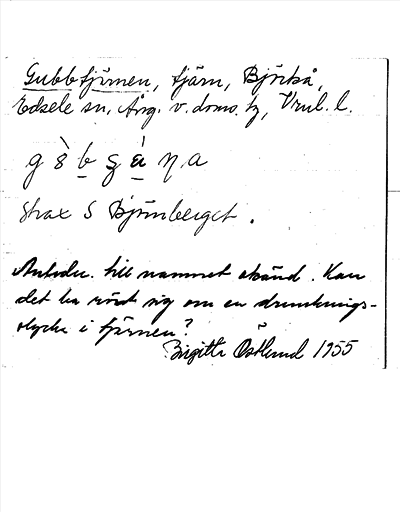 Gubbtjärnen, tjärn, Björkå,
Edsele sn, Ång. v. doms. hg, Vnl. l.
Strax S Björnberget.
Anledn. till namnet okänd. Kan
det ha rört sig om en drunknings-
olycka i tjärnen?
Birgitta Östlund 1955